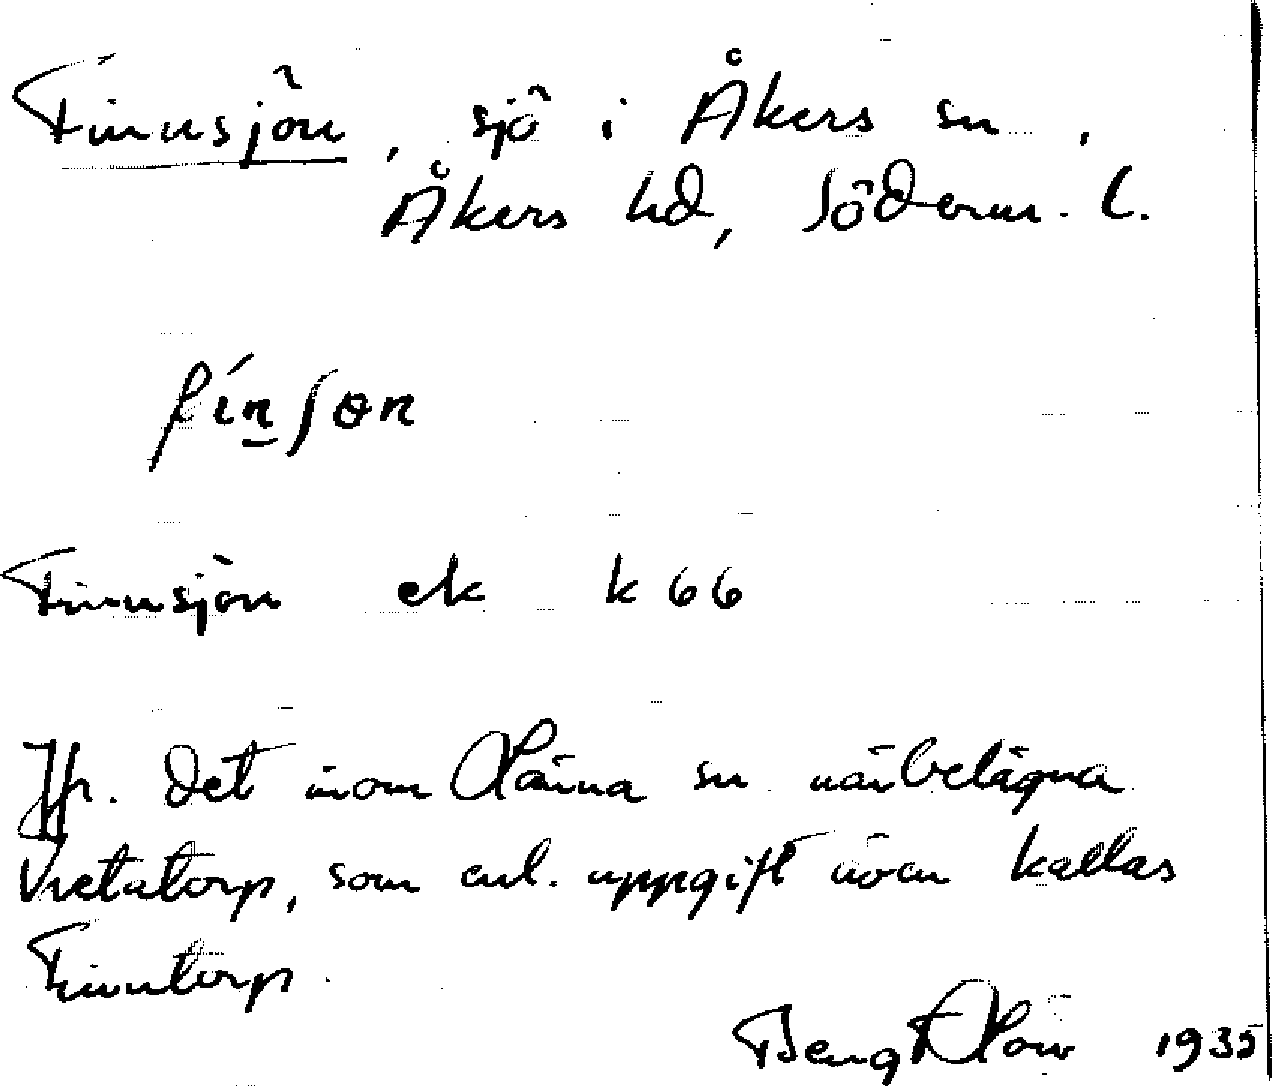 Finnsjön, sjö i Åkers sn,
Åkers hd, Söderm. l.
fín̲ʃɵn
Finnsjön ek k 66
Jfr. det inom Länna sn närbelägna
Vretatorp, som enl. uppgift även kallas
Finntorp.
Bengt Löw 1935